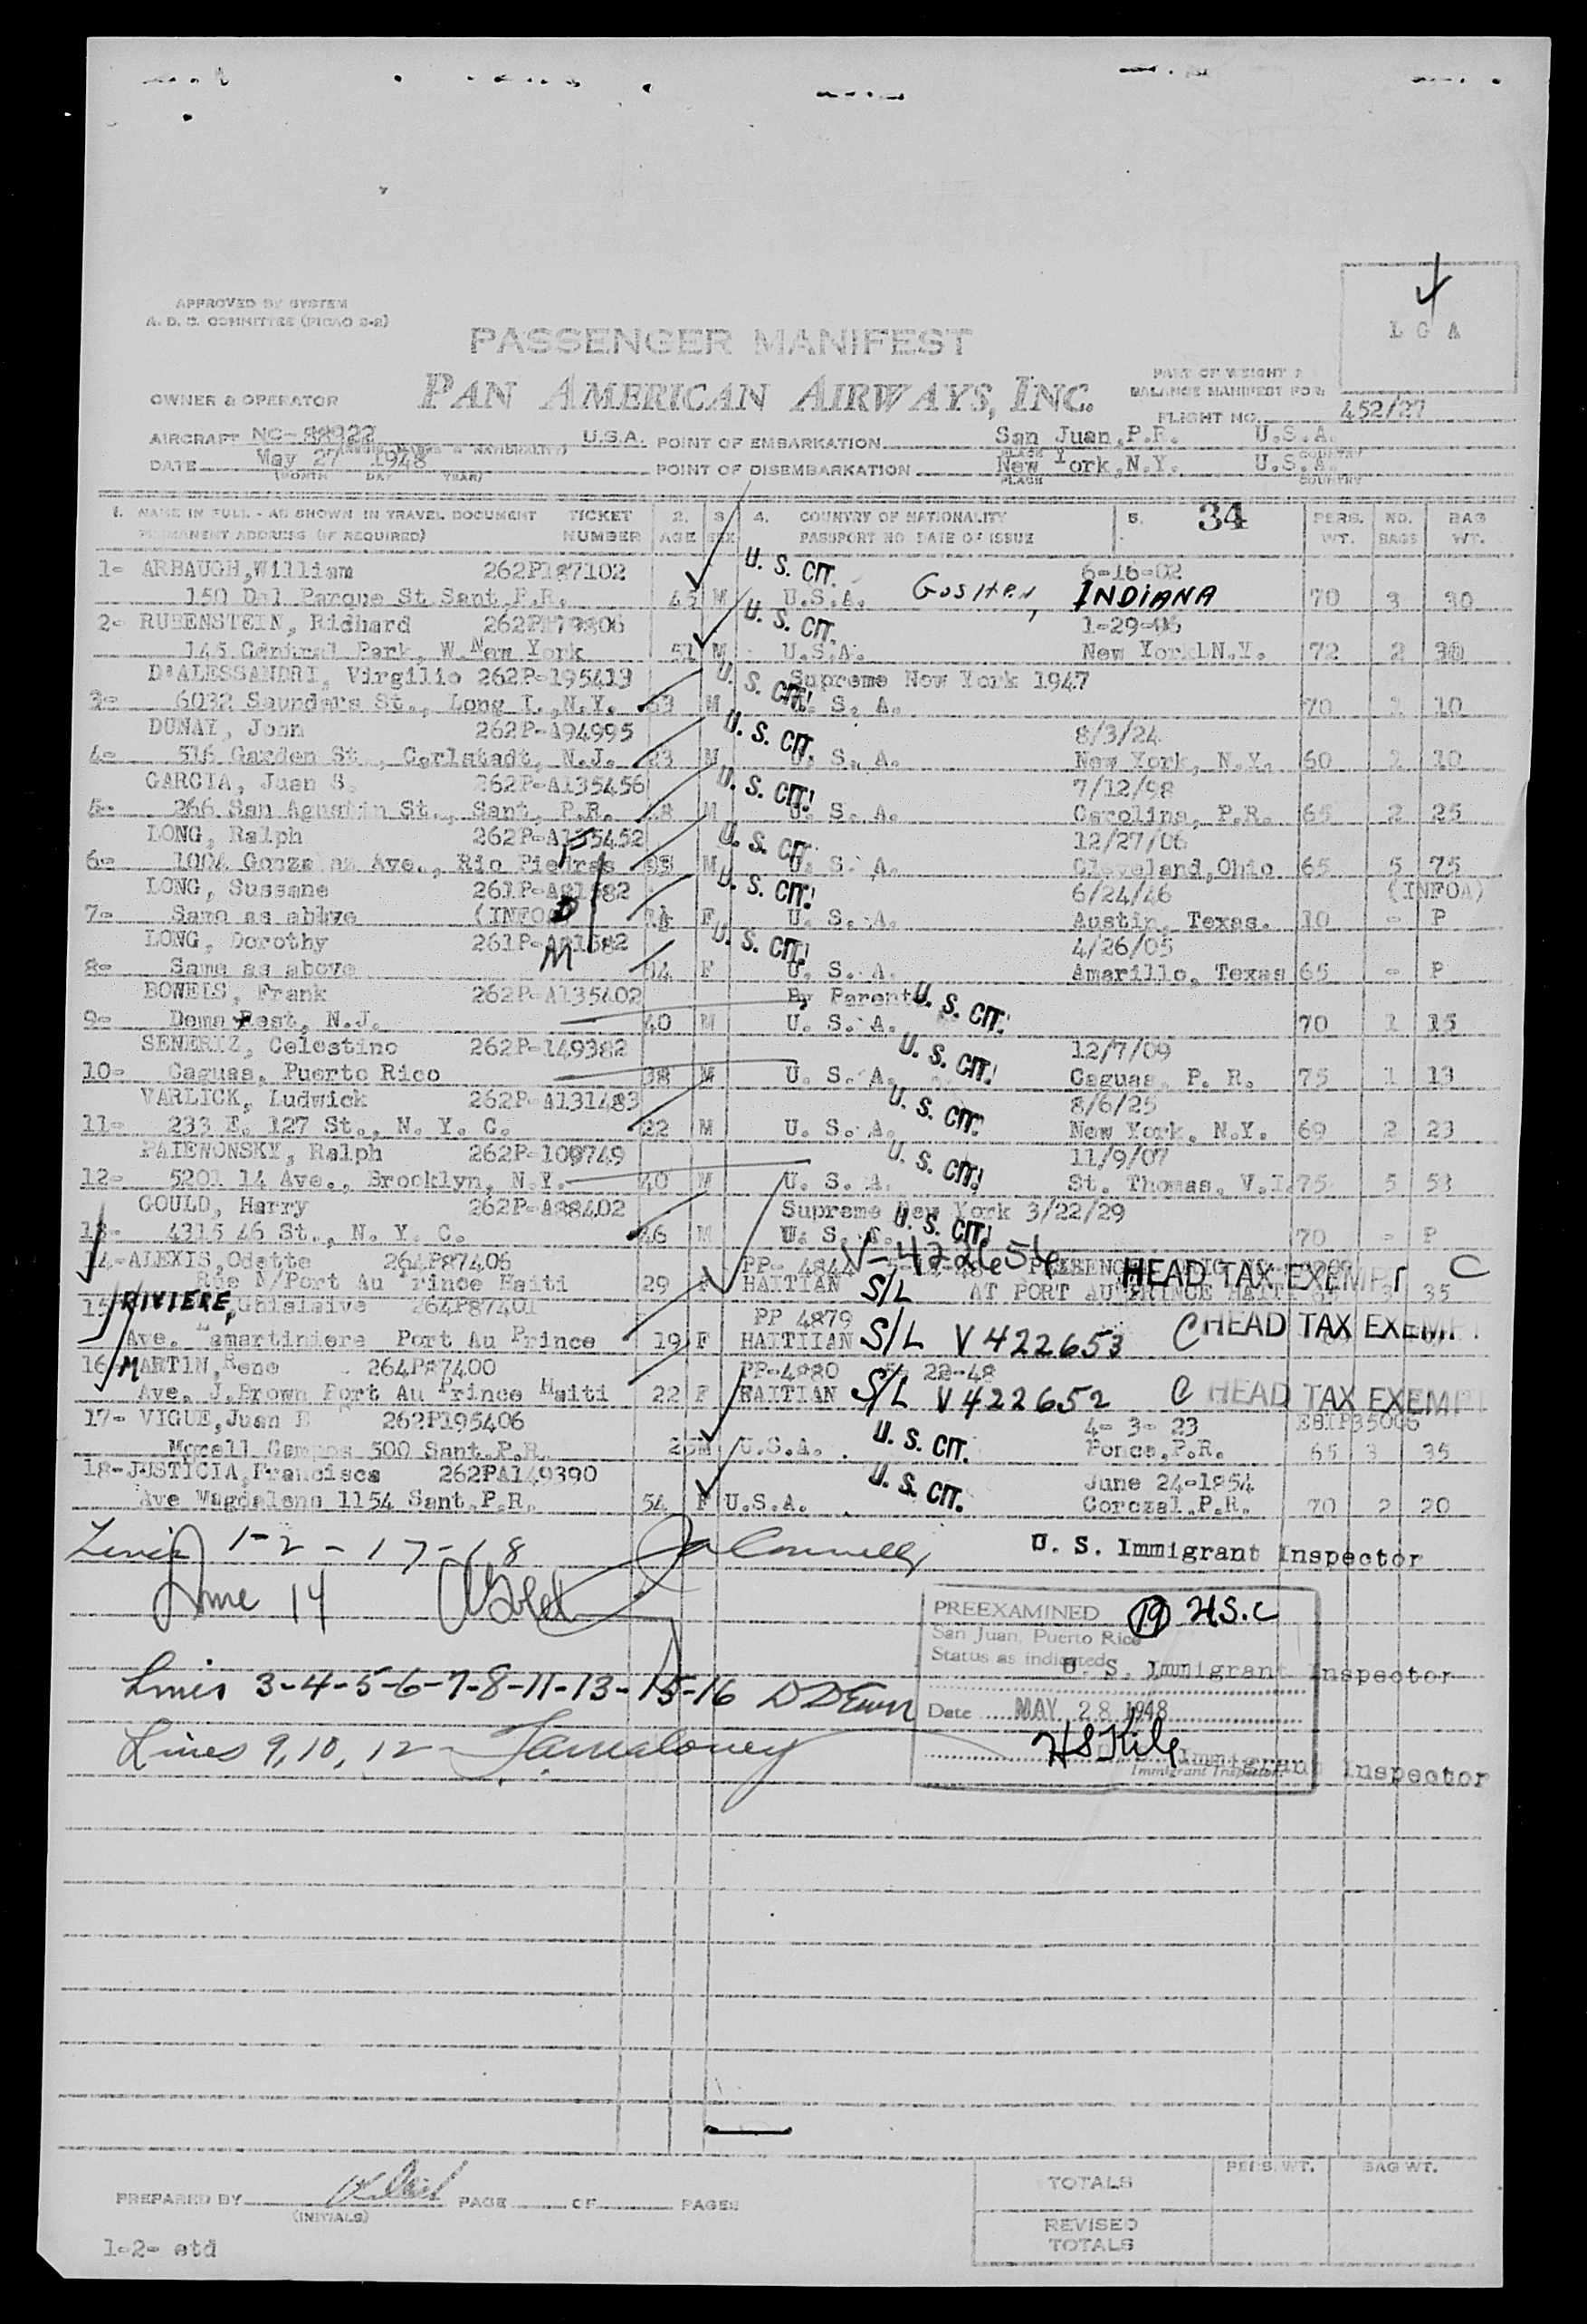 APPROVED BY SYSTEM
A. D. S. COMMITTEE (PICAO 2-2)
L G A
PASSENGER MANIFEST
PAN AMERICAN AIRWAYS, INC.
PART OF WEIGHT &
BALANCE MANIFEST FOR:
OWNER & OPERATOR
FLIGHT NO. 452/27
AIRCRAFT NC-88922 U.S.A. POINT OF EMBARKATION San Juan,P.R. U.S.A.
DATE May 27 1948 POINT OF DISEMBARKATION New York,N.Y. U.S.A.
(MONTH DAY YEAR) PLACE COUNTRY
1. NAME IN FULL - AS SHOWN IN TRAVEL DOCUMENT TICKET 2. 3 4. COUNTRY OF NATIONALITY 5. 34 PERS. NO. BAG
PERMANENT ADDRESS (IF REQUIRED) NUMBER AGE SEX PASSPORT NO DATE OF ISSUE WT. BAGS WT.
1- ARBAUGH,William 262P187102 U. S. CIT. 6-16-02
150 Del Parque St Sant P.R. 45 M U.S.A. Goshen, INDIANA 70 3 30
2- RUBENSTEIN, Ridhard U. S. CIT. 1-29-
145 Central Park, W.New York 51 M U.S.A. New York N.Y. 72 2 30
D'ALESSANDRI, Virgilio 262P-195413 U. S. CIT! Supreme New York 1947
3- 6032 Saunders St., Long I.,N.Y. M U. S. A. 70 1 10
DUNAY, John 262P-A94995 U. S. CIT. 8/3/24
4- 516 Garden St., Carlstadt, N.J. 23 M U. S. A. New York, N.Y. 60 1 10
GARCIA, Juan S. 262P-A135456 U. S. CIT! 7/12/98
5- 266 San Agustin St., Sant, P.R. M U. S. A. Carolina, P.R. 65 2 25
LONG, Ralph 262P-A135452 U. S. CIT. 12/27/06
6- 1004 Gonzales Ave., Rio Piedras M U. S. A. Cleveland,Ohio 65 5 75
LONG, Sussane U. S. CIT! 6/24/46 (INFOA)
7- Same as above F U. S. A. Austin, Texas. 10 - P
LONG, Dorothy M U. S. CIT! 4/26/05
8- Same as above F U. S. A. Amarillo, Texas 65 - P
BOWEIS, Frank 262P-A135402 By Parents U. S. CIT!
9- Dema Rest, N.J. 40 M U. S. A. 70 1 15
SENERIZ, Celestino 262P-149382 U. S. CIT! 12/7/09
10- Caguas, Puerto Rico 38 M U. S. A. Caguas, P. R. 75 1 13
VARLICK, Ludwick 262P-A131483 U. S. CIT! 8/6/25
11- 233 E. 127 St., N. Y. C. 22 M U. S. A. New York, N.Y. 69 2 23
PAIEWONSKY, Ralph 262P-109749 U. S. CIT! 11/9/07
12- 5201 14 Ave., Brooklyn, N.Y. 40 M U. S. A. St. Thomas, V.I. 75 5 53
GOULD, Harry 262P-A88402 Supreme New York 3/22/29
13- 4315 46 St., N. Y. C. 46 M U. S. A. U. S. CIT! 70 - P
14-ALEXIS,Odette 264P87406 PP- 4844 HEAD TAX EXEMPT C
Rue N/Port Au Prince Haiti 29 F HAITIAN S/L AT PORT AU PRINCE HAITI 3 35
15 RIVIERE, 264P87401 PP 4879
Ave. Lamartiniere Port Au Prince 19 F HAITIIAN S/L V422653 C HEAD TAX EXEMPT
16- MARTIN,Rene 264P87400 PP-4880 5/ 22-48
Ave. J.Brown Port Au Prince Haiti 22 F HAITIAN S/L V422652 C HEAD TAX EXEMPT
17- VIGUE,Juan E 262P195406 4- 3- 23
Morell Campos 500 Sant.P.R. 25 M U.S.A. U. S. CIT. Ponce,P.R. 65 3 35
18-JUSTICIA,Francisca 262PA149390 June 24-1854
Ave Magdalena 1154 Sant.P.R. 54 F U.S.A. U. S. CIT. Corozal.P.R. 70 2 20
Lines 1-2-17-18 U. S. Immigrant Inspector
Line 14
PREEXAMINED 19 H.S.C
San Juan, Puerto Rico
Status as indicated
U. S. Immigrant Inspector
Lines 3-4-5-6-7-8-11-13-15-16
Date MAY 28 1948
Lines 9, 10, 12
HSKile
Immigrant Inspector
PREPARED BY PAGE OF PAGES
(INITIALS)
PERS. WT. BAG WT.
TOTALS
REVISED
TOTALS
1-2- etd